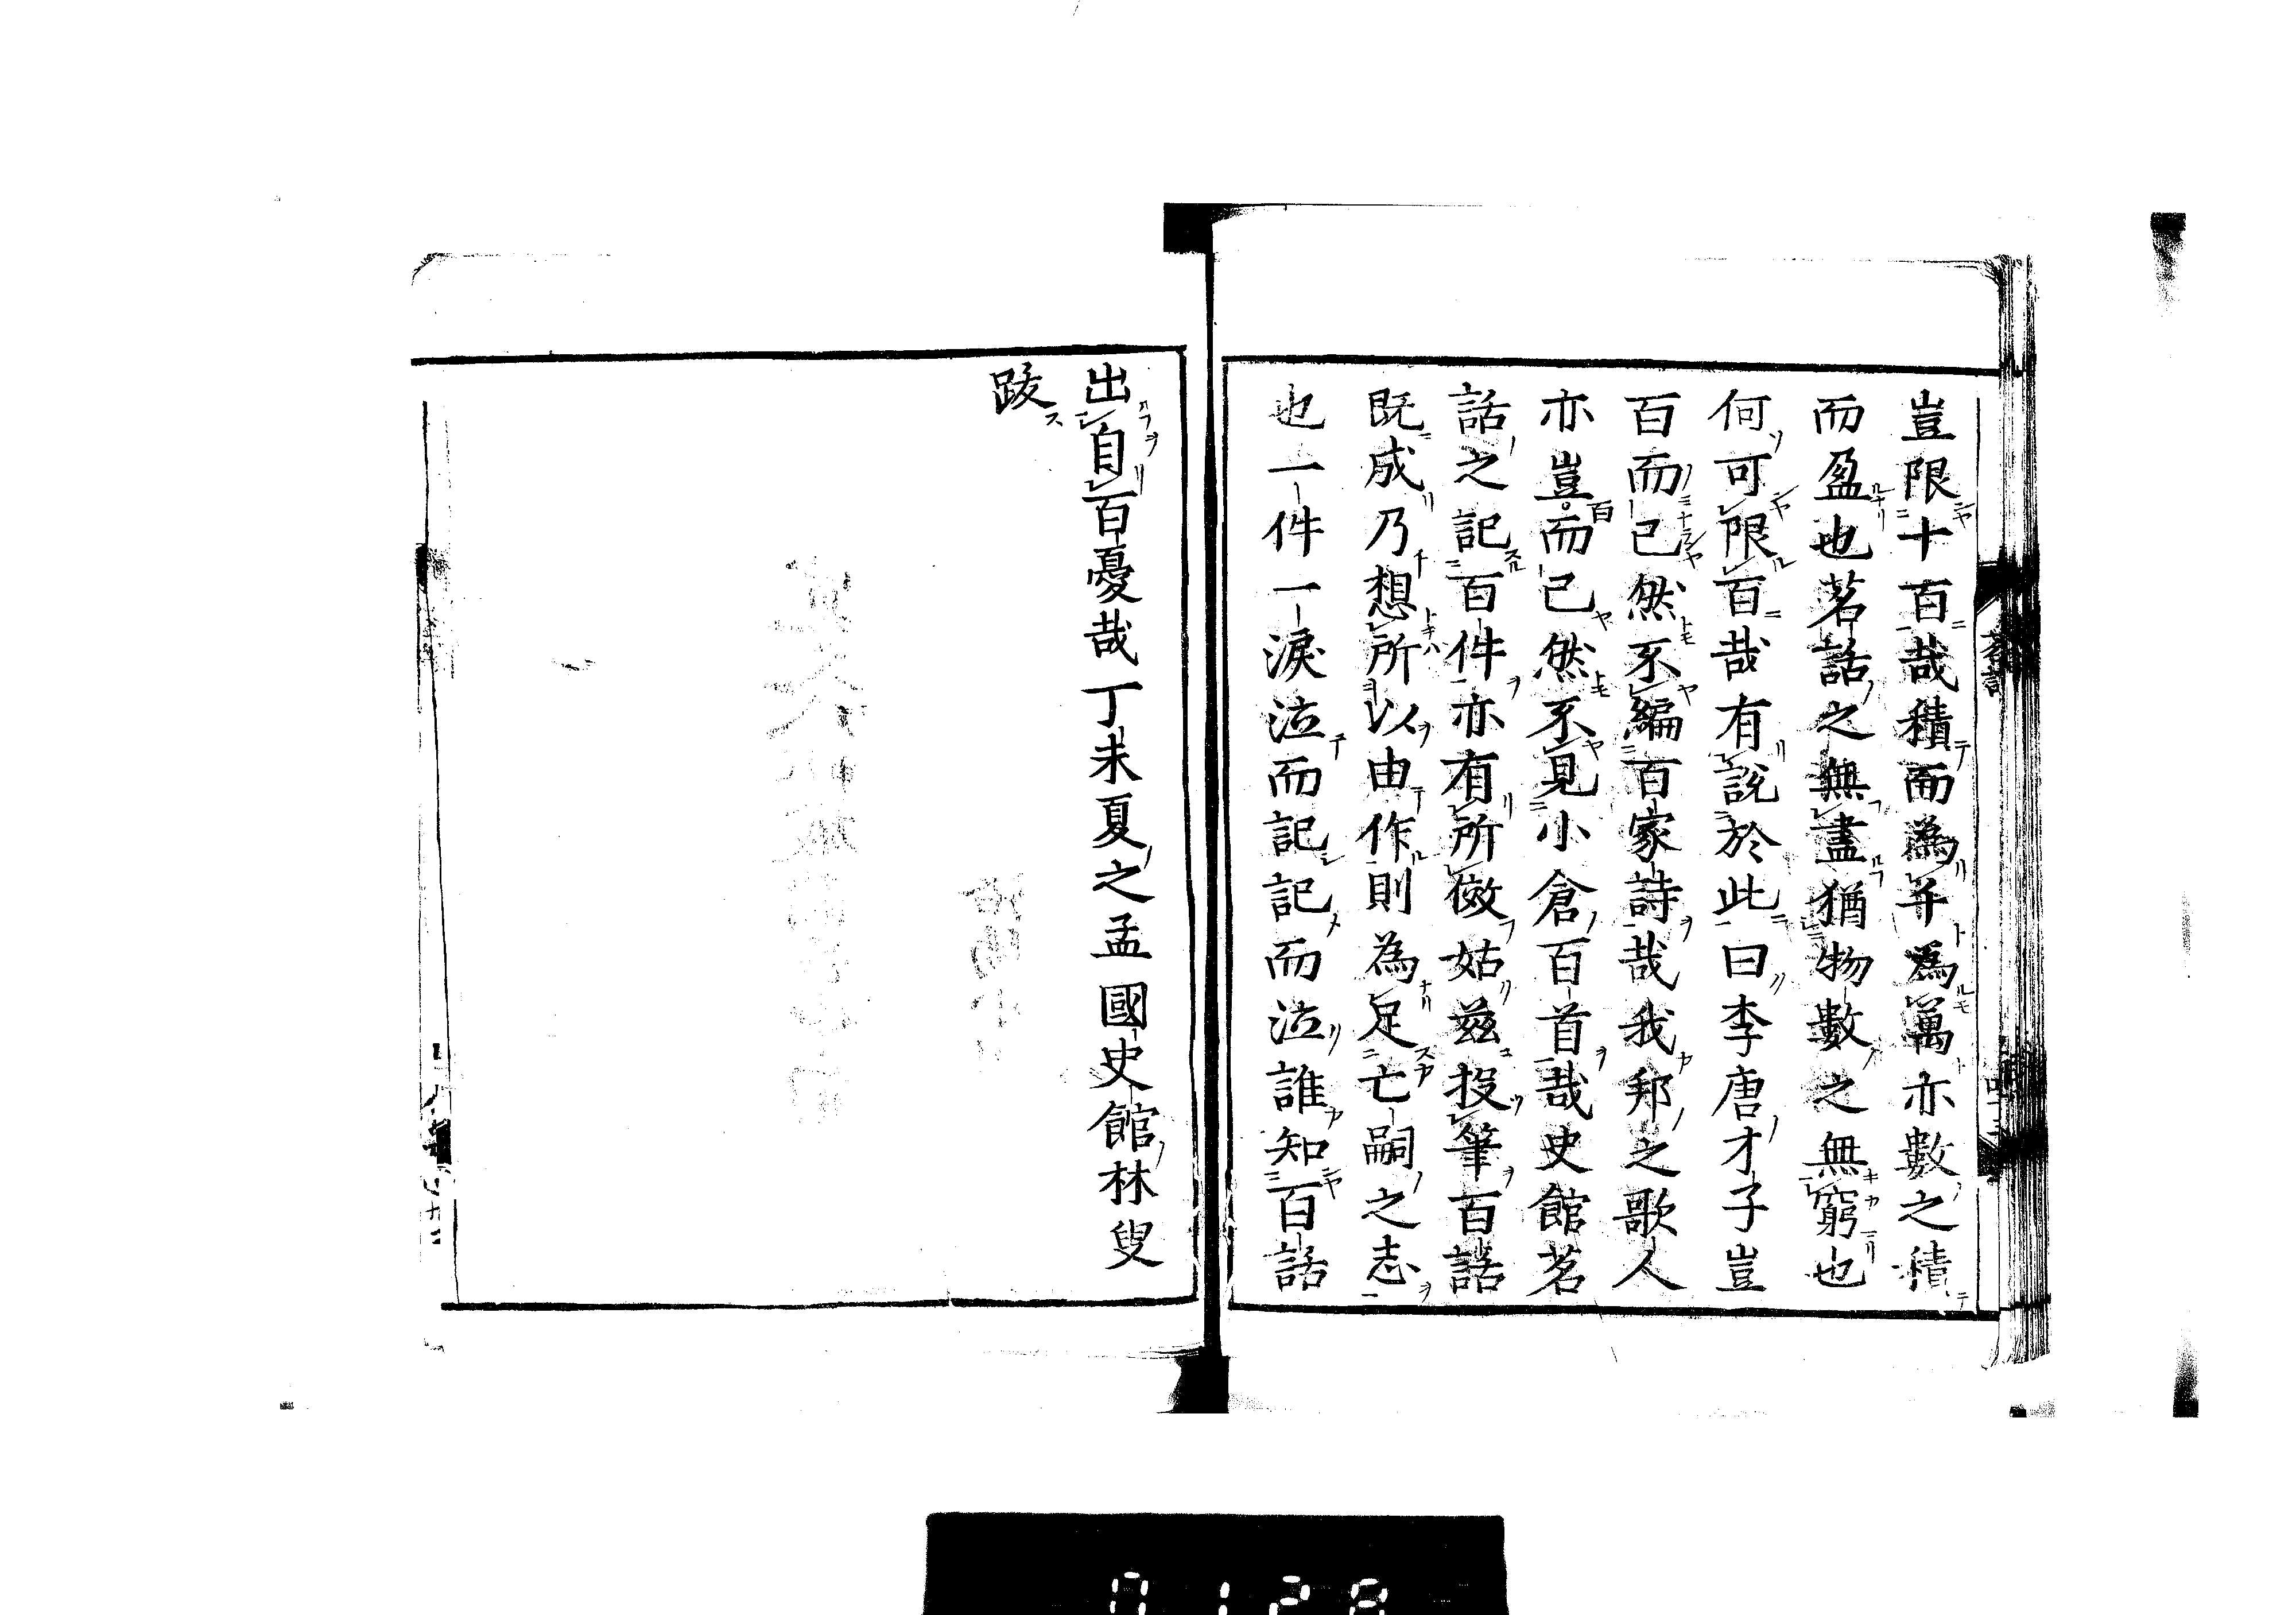 豈限十百哉積而為千為萬亦數之積
而盈也茗話之無盡猶物數之無窮也
何可限百哉有說於此曰李唐才子豈
百而已然不編百家詩哉我邦之歌人
亦豈百而已然不見小倉百首哉史館茗
話之記百件亦有所倣姑茲投筆百話
既成乃想所以由作則為足亡嗣之志
也一件一淚泣而記記而泣誰知百話
出自百憂哉丁未夏之孟國史館林叟
跋